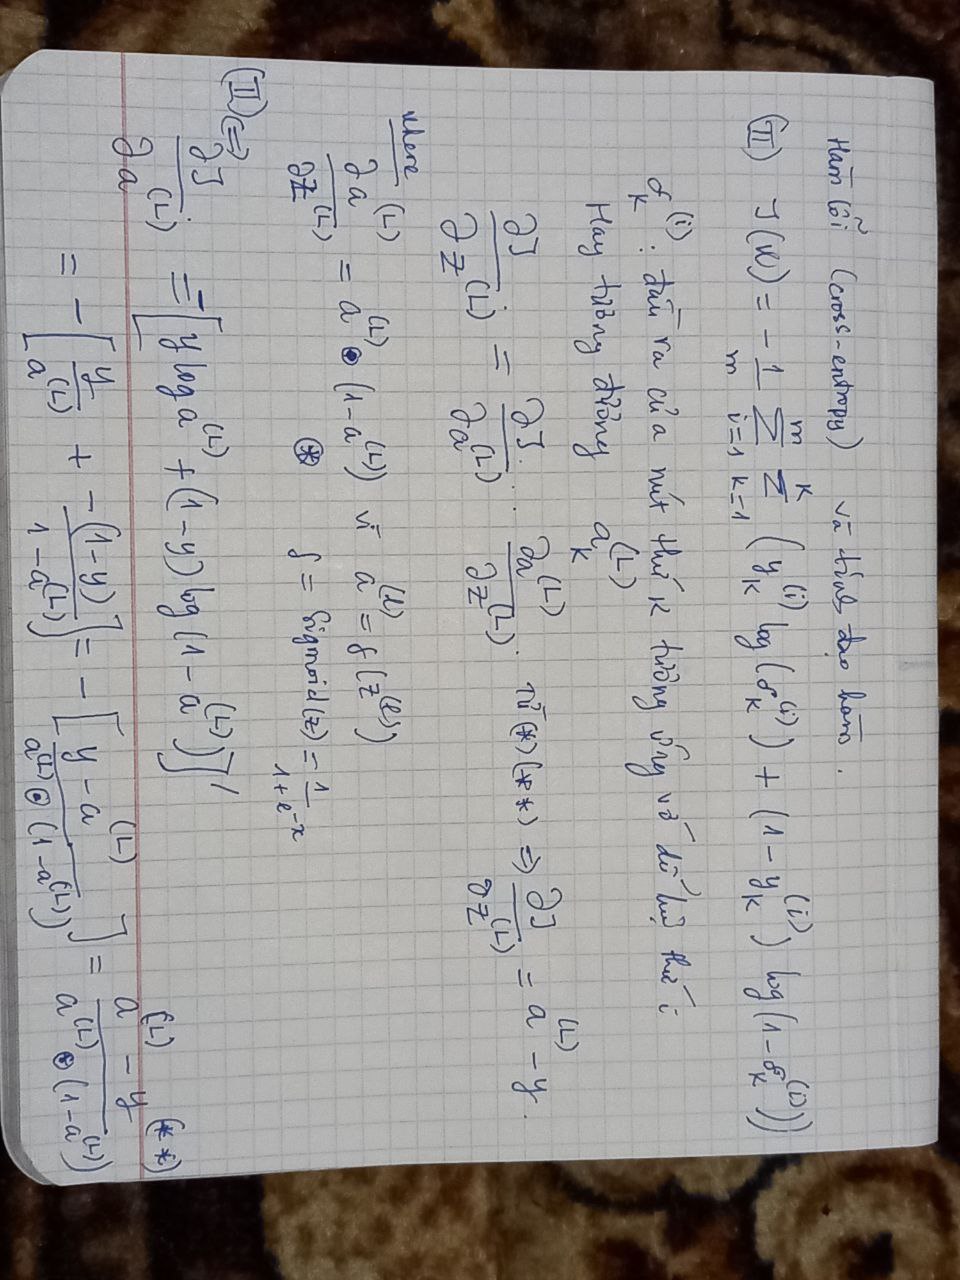 Hàm lỗi (cross-entropy) và tính đạo hàm.
(II) J(W) = -1/m Σ_{i=1}^{m} Σ_{k=1}^{K} (y_K^{(i)} log(σ_K^{(i)}) + (1 - y_K^{(i)}) log(1 - σ_K^{(i)}))
σ_K^{(i)}: đầu ra của nút thứ K tương ứng với dữ liệu thứ i
Hay tương đương a_K^{(L)}
∂J/∂z^{(L)} = ∂J/∂a^{(L)} · ∂a^{(L)}/∂z^{(L)}. Từ (*)(**) ⇒ ∂J/∂z^{(L)} = a^{(L)} - y.
where
∂a^{(L)}/∂z^{(L)} = a^{(L)} ⊙ (1 - a^{(L)}) vì a^{(l)} = f(z^{(l)})
⊛ f = Sigmoid(z) = 1/(1 + e^{-x})
(II) ⇔
∂J/∂a^{(L)} = -[y log a^{(L)} + (1 - y) log(1 - a^{(L)})]'
= -[y/a^{(L)} + -(1 - y)/(1 - a^{(L)})] = -[(y - a^{(L)})/(a^{(L)} ⊙ (1 - a^{(L)}))] = (a^{(L)} - y)/(a^{(L)} ⊙ (1 - a^{(L)})) (**)